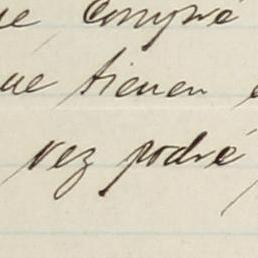 ue compré
ue tienen
vez podré